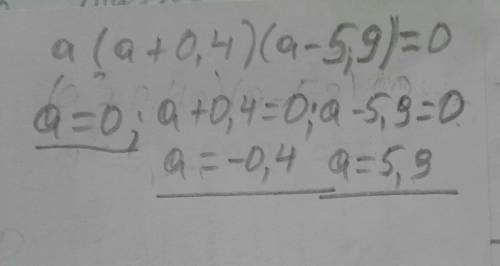 a(a+0,4)(a-5,9)=0
a=0; a+0,4=0; a-5,9=0
a=-0,4 a=5,9